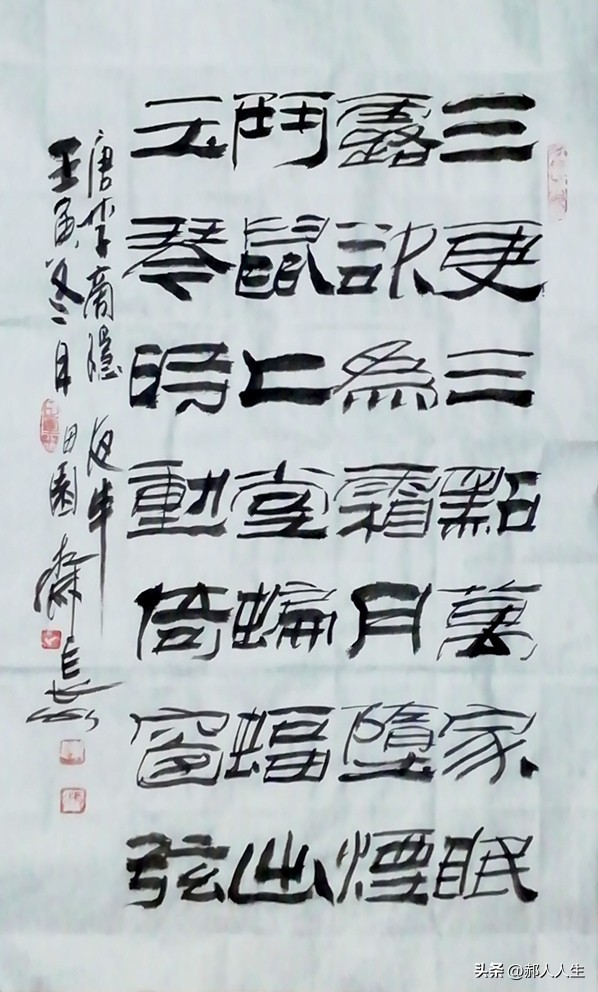 三更三點萬家眠
露欲為霜月墮煙
鬥鼠上堂蝙蝠出
玉琴時動倚窗弦
唐李商隱 夜半
壬寅冬月 田園
头条 @郝人人生